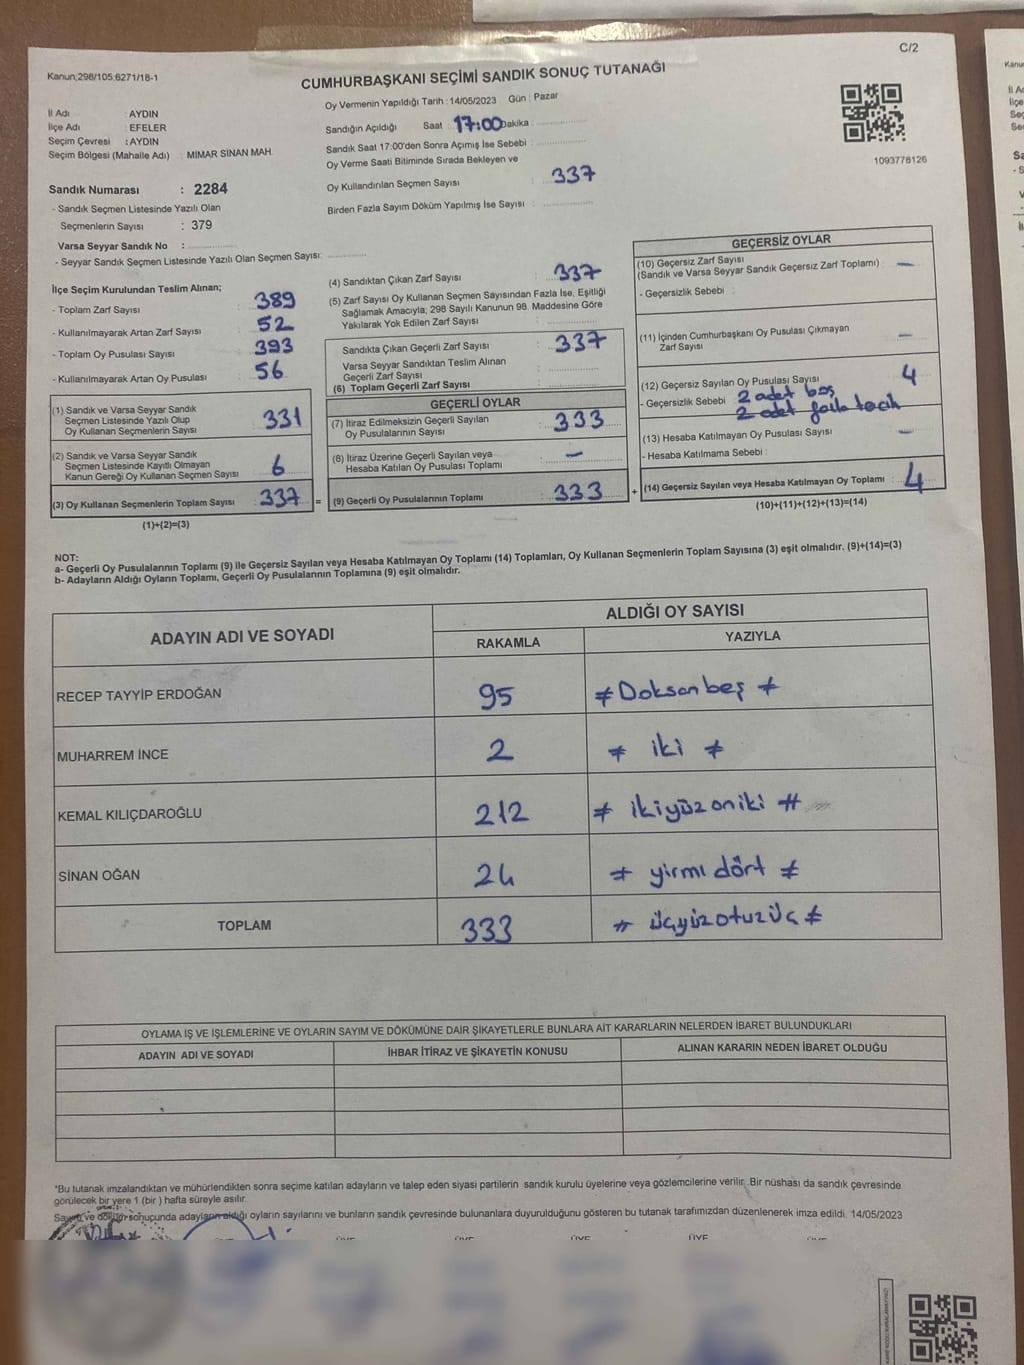 C/2
Kanun;298/105;6271/18-1
CUMHURBAŞKANI SEÇİMİ SANDIK SONUÇ TUTANAĞI
İl Adı : AYDIN
İlçe Adı : EFELER
Seçim Çevresi : AYDIN
Seçim Bölgesi (Mahalle Adı) : MİMAR SİNAN MAH.
Sandık Numarası : 2284
- Sandık Seçmen Listesinde Yazılı Olan
Seçmenlerin Sayısı : 379
Varsa Seyyar Sandık No :
- Seyyar Sandık Seçmen Listesinde Yazılı Olan Seçmen Sayısı:
Oy Vermenin Yapıldığı Tarih : 14/05/2023 Gün : Pazar
Sandığın Açıldığı Saat 17:00 Dakika :
Sandık Saat 17:00'den Sonra Açımış İse Sebebi :
Oy Verme Saati Bitiminde Sırada Bekleyen ve
Oy Kullandırılan Seçmen Sayısı : 337
Birden Fazla Sayım Döküm Yapılmış İse Sayısı :
1093778126
İlçe Seçim Kurulundan Teslim Alınan;
- Toplam Zarf Sayısı : 389
- Kullanılmayarak Artan Zarf Sayısı : 52
- Toplam Oy Pusulası Sayısı : 393
- Kullanılmayarak Artan Oy Pusulası : 56
(1) Sandık ve Varsa Seyyar Sandık
Seçmen Listesinde Yazılı Olup
Oy Kullanan Seçmenlerin Sayısı : 331
(2) Sandık ve Varsa Seyyar Sandık
Seçmen Listesinde Kayıtlı Olmayan
Kanun Gereği Oy Kullanan Seçmen Sayısı : 6
(3) Oy Kullanan Seçmenlerin Toplam Sayısı : 337 =
(1)+(2)=(3)
(4) Sandıktan Çıkan Zarf Sayısı : 337
(5) Zarf Sayısı Oy Kullanan Seçmen Sayısından Fazla İse, Eşitliği
Sağlamak Amacıyla; 298 Sayılı Kanunun 98. Maddesine Göre
Yakılarak Yok Edilen Zarf Sayısı :
Sandıkta Çıkan Geçerli Zarf Sayısı : 337
Varsa Seyyar Sandıktan Teslim Alınan
Geçerli Zarf Sayısı :
(6) Toplam Geçerli Zarf Sayısı :
GEÇERLİ OYLAR
(7) İtiraz Edilmeksizin Geçerli Sayılan
Oy Pusulalarının Sayısı : 333
(8) İtiraz Üzerine Geçerli Sayılan veya
Hesaba Katılan Oy Pusulası Toplamı : –
(9) Geçerli Oy Pusulalarının Toplamı : 333 +
GEÇERSİZ OYLAR
(10) Geçersiz Zarf Sayısı
(Sandık ve Varsa Seyyar Sandık Geçersiz Zarf Toplamı) : –
- Geçersizlik Sebebi :
(11) İçinden Cumhurbaşkanı Oy Pusulası Çıkmayan
Zarf Sayısı : –
(12) Geçersiz Sayılan Oy Pusulası Sayısı : 4
- Geçersizlik Sebebi : 2 adet boş
2 adet fazla tercih
(13) Hesaba Katılmayan Oy Pusulası Sayısı : –
- Hesaba Katılmama Sebebi :
(14) Geçersiz Sayılan veya Hesaba Katılmayan Oy Toplamı : 4
(10)+(11)+(12)+(13)=(14)
NOT:
a- Geçerli Oy Pusulalarının Toplamı (9) ile Geçersiz Sayılan veya Hesaba Katılmayan Oy Toplamı (14) Toplamları, Oy Kullanan Seçmenlerin Toplam Sayısına (3) eşit olmalıdır. (9)+(14)=(3)
b- Adayların Aldığı Oyların Toplamı, Geçerli Oy Pusulalarının Toplamına (9) eşit olmalıdır.
ADAYIN ADI VE SOYADI
ALDIĞI OY SAYISI
RAKAMLA YAZIYLA
RECEP TAYYİP ERDOĞAN 95 # Doksan beş #
MUHARREM İNCE 2 # iki #
KEMAL KILIÇDAROĞLU 212 # ikiyüz oniki #
SİNAN OĞAN 24 # yirmi dört #
TOPLAM 333 # üçyüz otuz üç #
OYLAMA İŞ VE İŞLEMLERİNE VE OYLARIN SAYIM VE DÖKÜMÜNE DAİR ŞİKAYETLERLE BUNLARA AİT KARARLARIN NELERDEN İBARET BULUNDUKLARI
ADAYIN ADI VE SOYADI İHBAR İTİRAZ VE ŞİKAYETİN KONUSU ALINAN KARARIN NEDEN İBARET OLDUĞU
*Bu tutanak imzalandıktan ve mühürlendikten sonra seçime katılan adayların ve talep eden siyasi partilerin sandık kurulu üyelerine veya gözlemcilerine verilir. Bir nüshası da sandık çevresinde
görülecek bir yere 1 (bir ) hafta süreyle asılır.
Sayım ve döküm sonucunda adayların aldığı oyların sayılarını ve bunların sandık çevresinde bulunanlara duyurulduğunu gösteren bu tutanak tarafımızdan düzenlenerek imza edildi. 14/05/2023